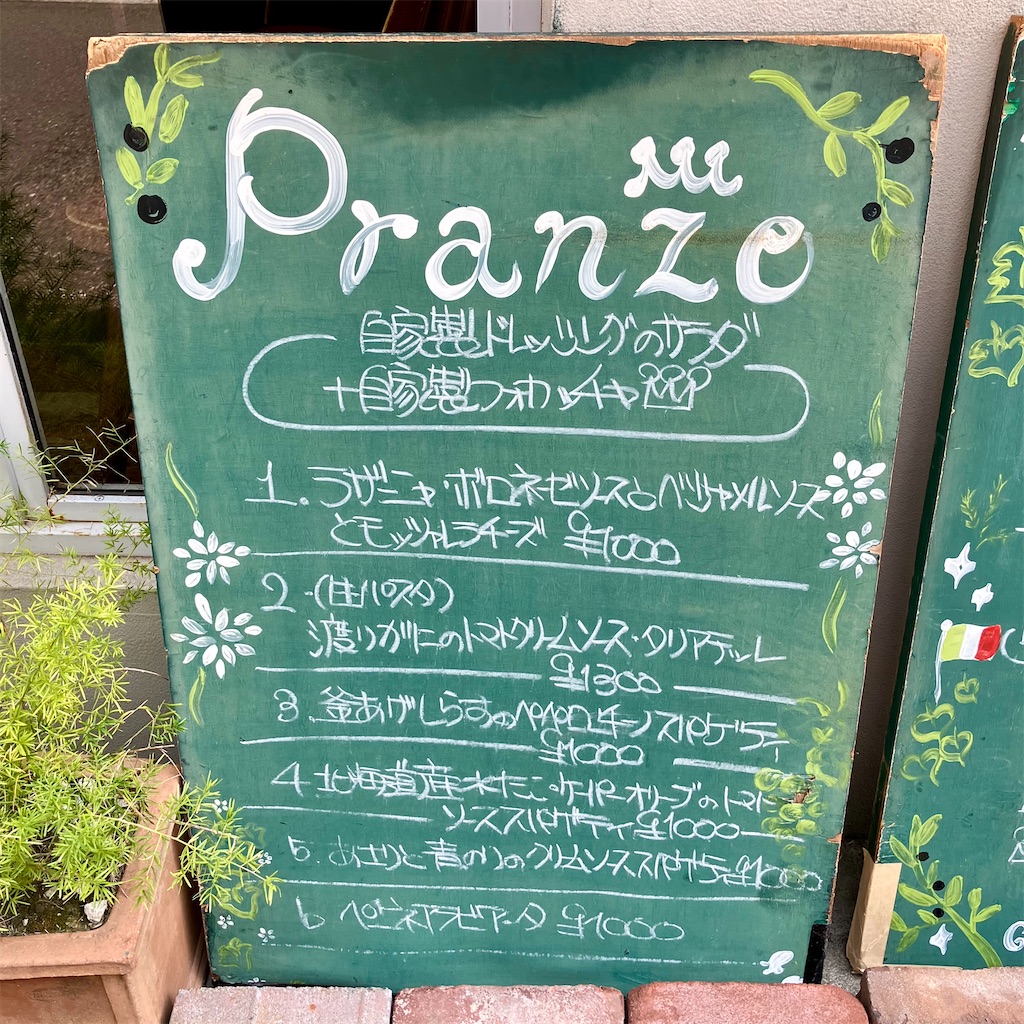 Pranzo
自家製ドレッシングのサラダ
+自家製フォカッチャ
1. ラザニャ・ボロネーゼソースとベシャメルソース
とモッツァレラチーズ ¥1000
2.(生パスタ)
渡りがにのトマトクリームソース・タリアテッレ
¥1300
3.釜あげしらすのペペロンチーノスパゲティ
¥1000
4.北海道産水たこ・ケーパーオリーブのトマト
ソーススパゲティ ¥1000
5.あさりと青のりのクリームソーススパゲティ ¥1000
6 ペンネアラビアータ ¥1000